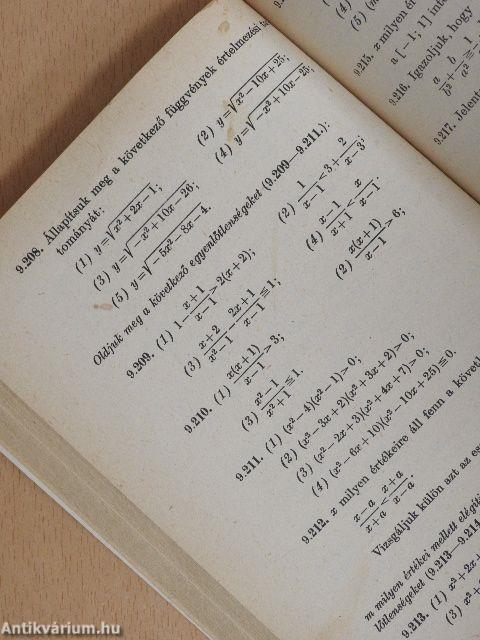 9.208. Állapítsuk meg a következő függvények értelmezési
tományát:
(1) y=√(x²+2x−1);
(2) y=√(x²−10x+25);
(3) y=√(−x²+10x−26);
(4) y=√(−x²+10x−25);
(5) y=√(−5x²−8x−4).
Oldjuk meg a következő egyenlőtlenségeket (9.209—9.211.):
9.209. (1) 1−(x+1)/(x−1)>2(x+2);
(2) 1/(x−1)<3+2/(x−3);
(3) (x+2)/(x²−1)−(2x+1)/(x−1)≦1;
(4) (x−1)/(x+1)<x/(x−1).
9.210. (1) x(x+1)/(x−1)>3;
(2) x(x+1)/(x−1)>6;
(3) (x²−1)/(x²+1)≦1.
9.211. (1) (x²−4)(x²−1)>0;
(2) (x²−3x+2)(x²+3x+2)>0;
(3) (x²−2x+3)(x²+4x+7)>0;
(4) (x²−6x+10)(x²−10x+25)≦0.
9.212. x milyen értékeire áll fenn a
(x−a)/(x+a)<(x+a)/(x−a)
Vizsgáljuk külön azt az
m milyen értékei mellett
lőtlenségeket (9.213—9.214
9.213. (1) x²+2x+
(3) x²+
(4)
(5)
9.215. x milyen
a [−1; 1]
9.216. Igazoljuk, hogy
a/b²+b/a²≧1
9.217.
Antikvárium.hu